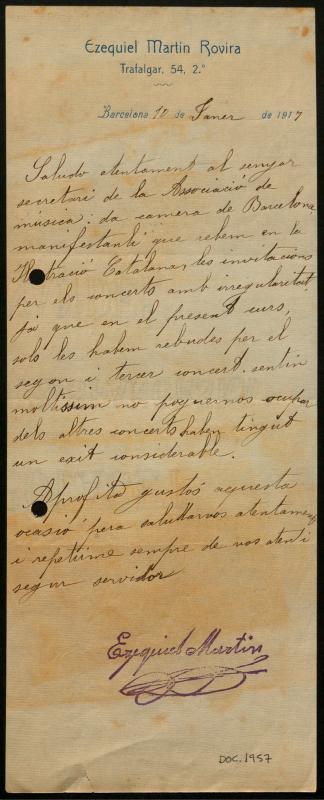 Ezequiel Martin Rovira
Trafalgar, 54, 2.º
Barcelona 12 de Janer de 1917
Saludo atentament al senyor
secretari de la Associació de
música: da camera de Barcelona
manifestantli que rebem en la
Ilustració Catalana, les invitacions
per els concerts amb irregularitat,
ja que en el present curs,
sols les habem rebudes per el
segon i tercer concert. sentin
moltissim no poguernos ocupar
dels altres concerts haben tingut
un exit considerable.
Aprofito gustós aquesta
ocasió pera saludarvos atentament
i repetirme sempre de vos aten i
segur servidor
Ezequiel Martin
DOC. 1957